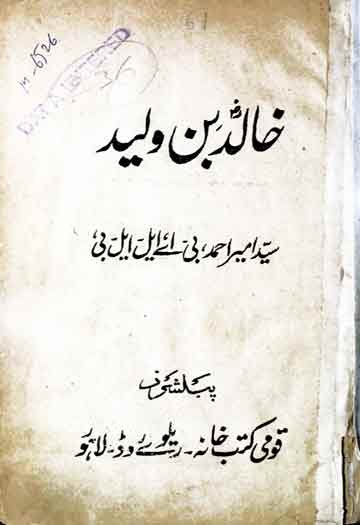 m-6526
DATA ENTERED
خالدؓ بن ولید
سید امیر احمد، بی۔ اے ایل ایل بی،
پبلشرز
قومی کتب خانہ۔ ریلوے روڈ۔ لاہور